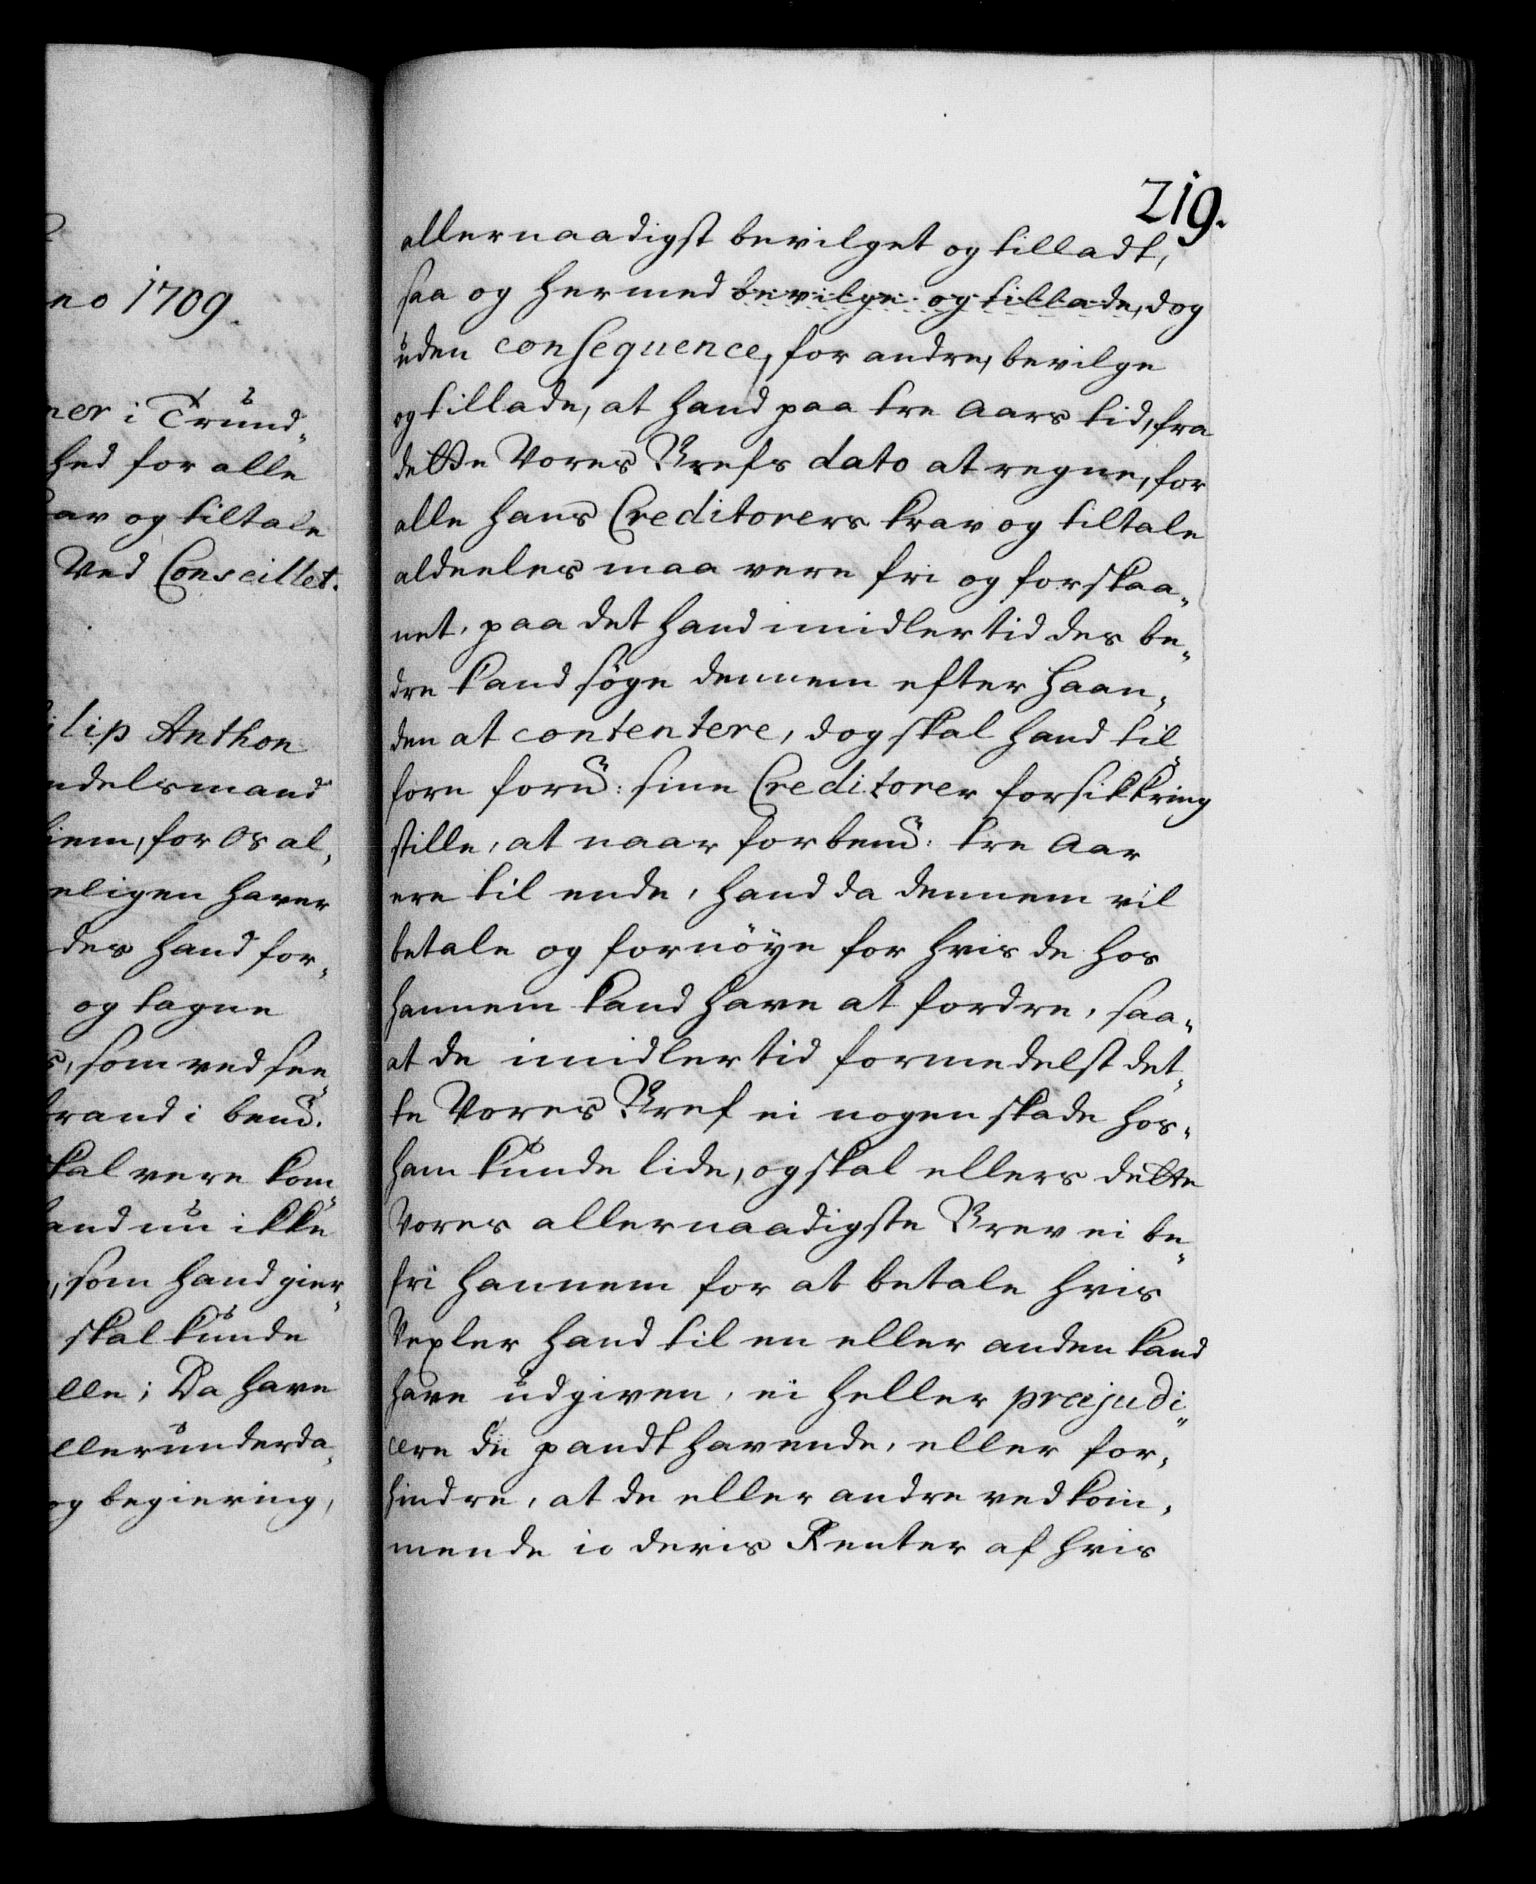 no 1709.
ner i Trund„
hed for alle
av og tiltale
Ved Conseillet.
ilip Anthon
ndelsmand
iem, for Os al„
eligen haver
des hand for„
og tagne
s, som ved see„
brand i bem:
skal vere kom„
and nu ikke
, som hand gier„
skal kunde
lle; Da have
llerunderda„
og begiering,
219.
allernaadigst bevilget og tilladt,
saa og hermed bevilge og tillade, dog
uden consequence, for andre, bevilge
og tillade, at hand paa tre Aars tid, fra
dette Vores Brefs dato at regne, for
alle hans Creditorers krav og tiltale
aldeeles maa vere fri og forskaa„
net, paa det hand imidlertid des be„
dre kand søge dennem efter haan„
den at contentere, dog skal hand til„
forn forn: sine Creditorer forsikkring
stille, at naar forbem: tre Aar
ere til ende, hand da dennem vil
betale og fornøye for hvis de hos
hannem kand have at fordre, saa„
at de imidlertid formedelst det„
te Vores Bref ei nogen skade hos„
ham kunde lide, og skal ellers dette
Vores allernaadigste Brev ei be„
fri hannem for at betale hvis
Vexler hand til en eller anden kand
have udgiven, ei heller præjudi„
cere de pandthavende, eller for„
hindre, at de eller andre vedkom„
mende io deris Renter af hvis